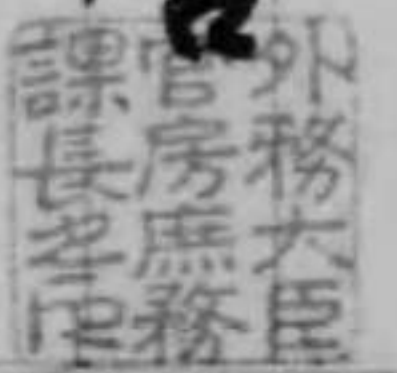 外務大臣
官房庶務
課長印